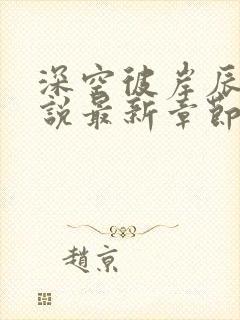 深空彼岸辰
說最新章節
趙京